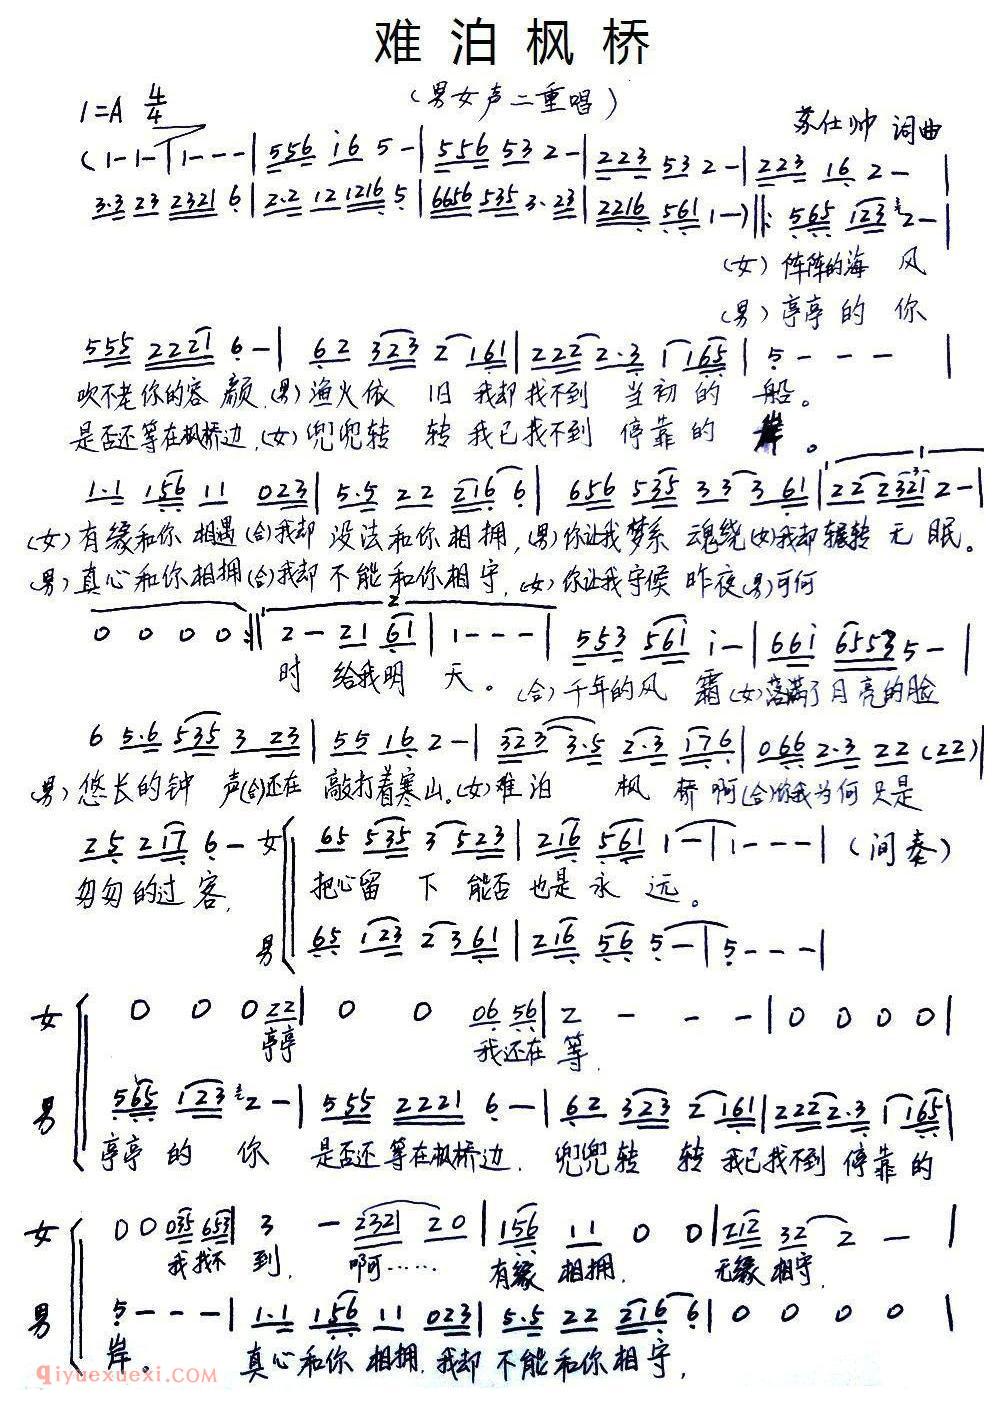 难泊枫桥
(男女声二重唱)
1=A 4/4
苏仕帅 词曲
(1-1-|1---|556 i6 5-|556 53 2-|223 53 2-|223 16 2-|
3·3 23 2321 6|2·2 12 1216 5|6656 535 3·23|2216 561 1-)‖:565 123 2-|
(女)阵阵的海 风
(男)亭亭的 你
555 2221 6-|62 323 2 161|222 2·3 1 165|5---|
吹不老你的容 颜.(男)渔火依 旧 我却找不到 当初的 船。
是否还等在枫桥边,(女)兜兜转 转 我已找不到 停靠的 岸。
1·1 156 11 023|5·5 22 216 6|656 535 33 3 61|22 2321 2-|
(女)有缘和你 相遇(合)我却 没法和你相拥,(男)你让我梦系 魂绕(女)我却辗转 无 眠。
(男)真心和你相拥(合)我却 不能和你相守,(女)你让我守候 昨夜(男)可何
0 0 0 0:‖2-21 61|1---|553 561 i-|66i 6553 5-|
时 给我明 天。(合)千年的风 霜(女)落满了月亮的脸
6 5·6 535 3 23|55 16 2-|323 3·5 2·3 176|066 2·3 22(22)|
(男)悠长的钟 声(合)还在 敲打着寒山。(女)难泊 枫 桥啊(合)你我为何只是
25 217 6- 女 65 535 3 523|216 561 1-|1---|(间奏)
匆匆的过客, 把心留 下 能否 也是永 远。
男 65 123 2 361|216 56 5-|5---|
女 0 0 0 22|0 0 06 56|2 - - -|0 0 0 0|
亭亭 我还在 等.
男 565 123 2-|555 2221 6-|62 323 2 161|222 2·3 1 165|
亭亭的 你 是否还等在枫桥边. 兜兜转 转 我已找不到 停靠的
女 0 0 035 653|3 - 2321 20|156 11 0 0|212 32 2 -|
我找不 到, 啊…… 有缘 相拥. 无缘 相守.
男 5---|1·1 156 11 023|5·5 22 216 6|0 0 0 0|
岸。 真心和你 相拥.我却 不能和你相守,
qiyuexuexi.com